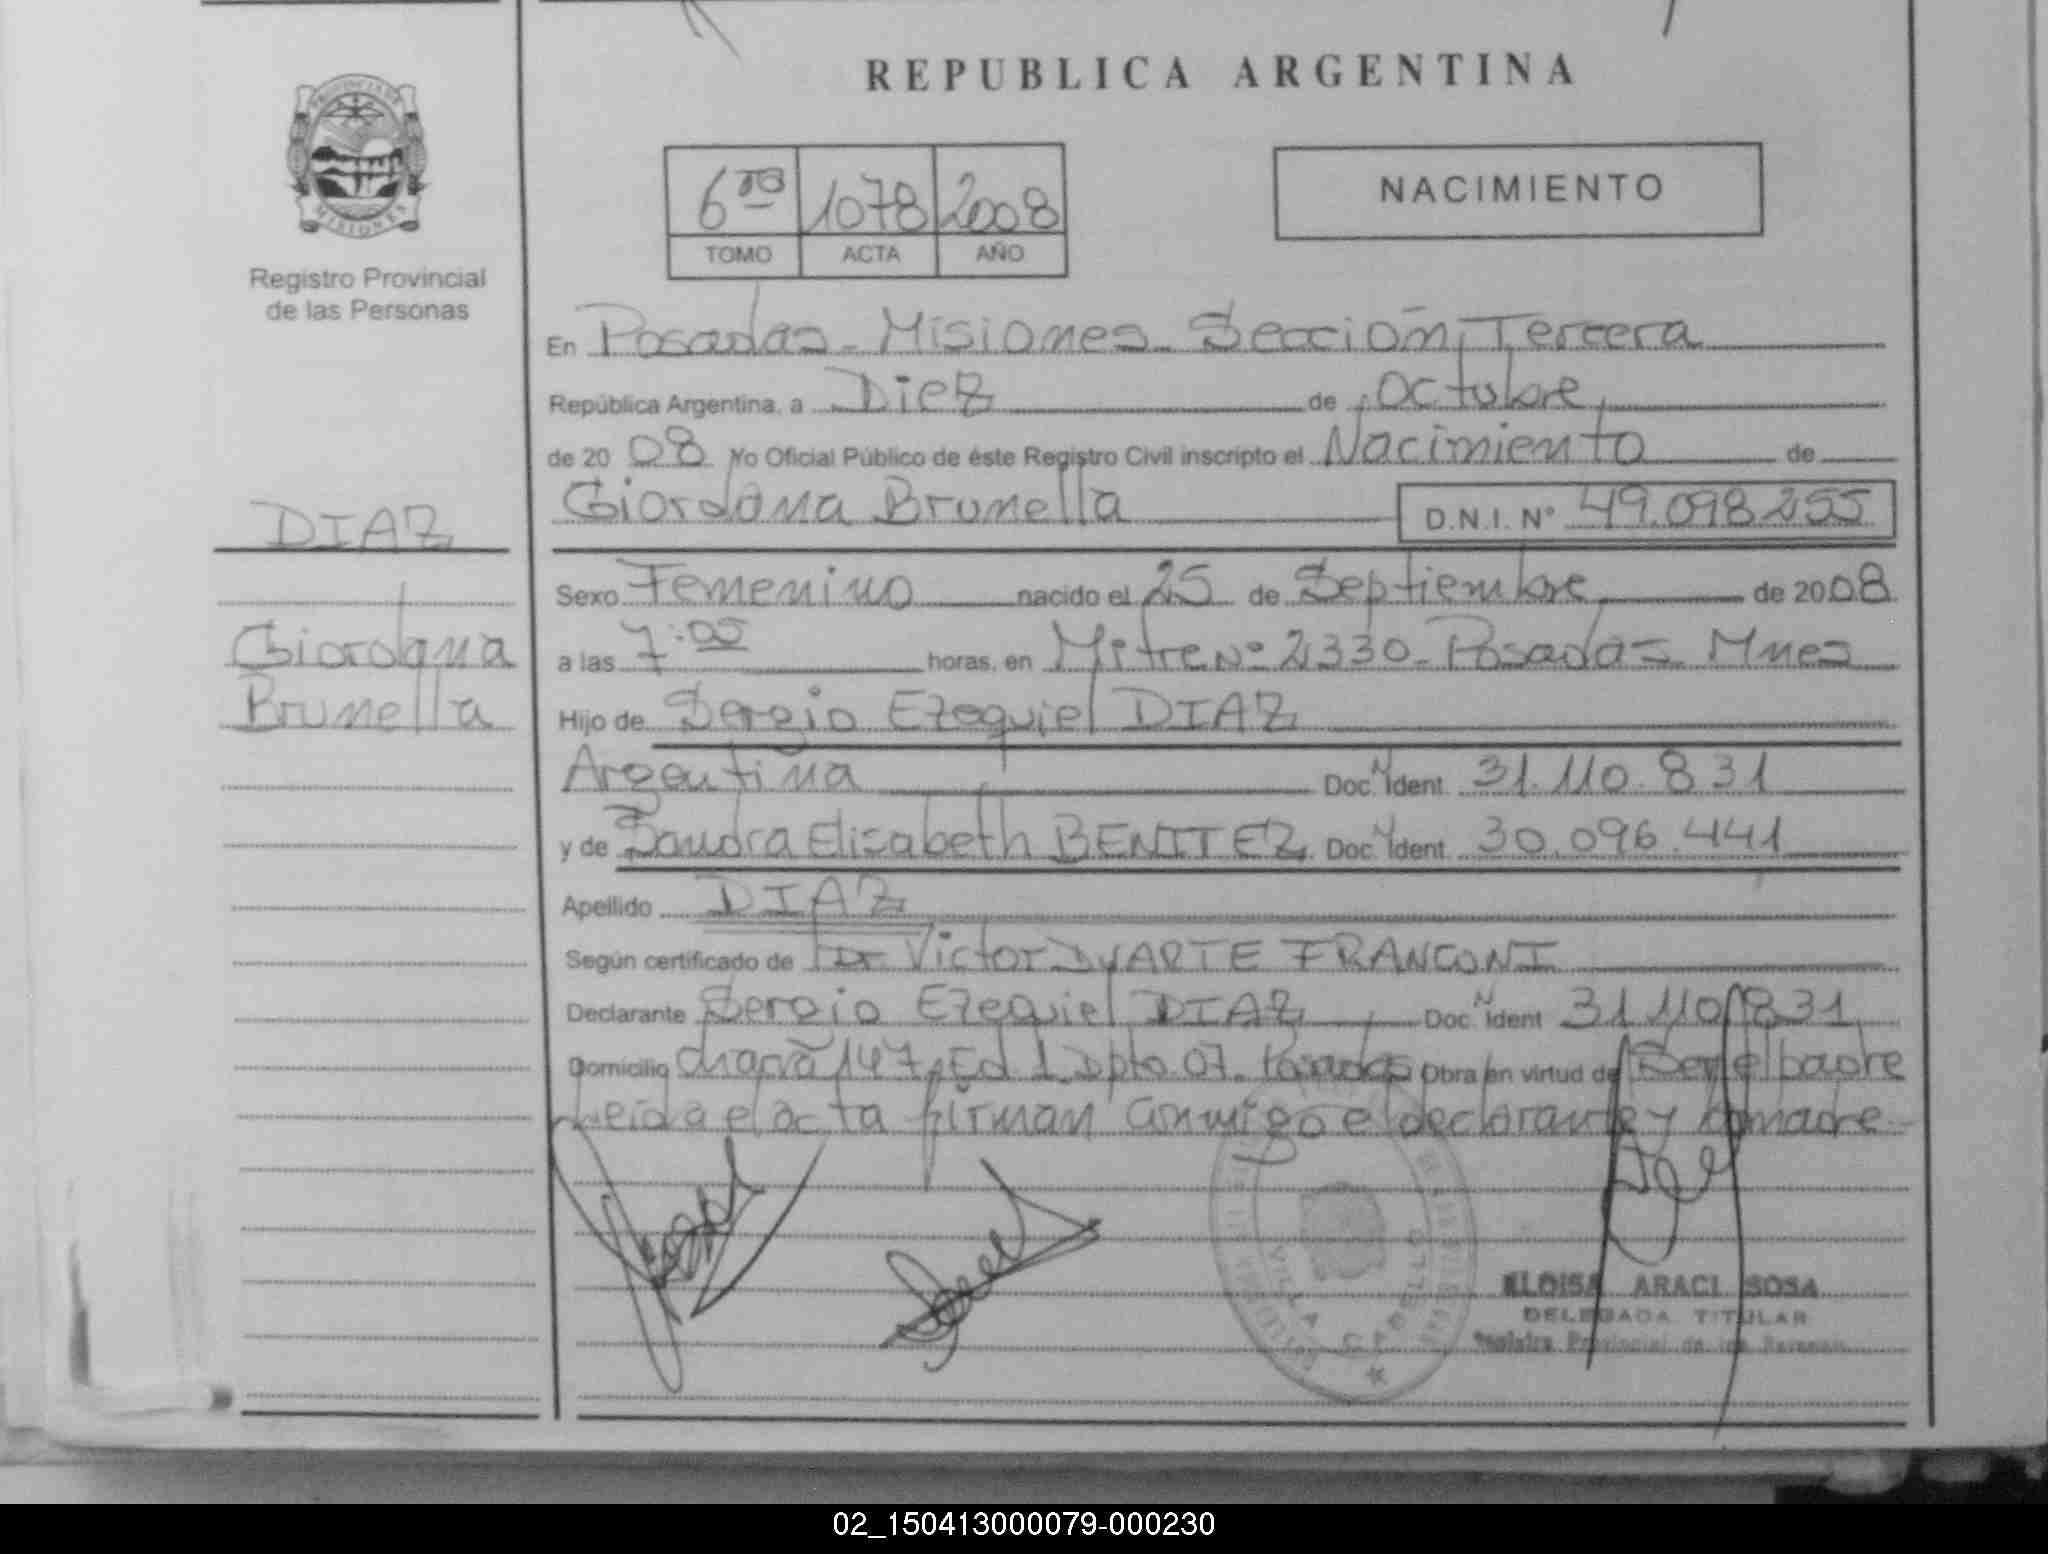 REPUBLICA ARGENTINA
PROVINCIA DE
MISIONES
Registro Provincial
de las Personas
6to 1078 2008
TOMO ACTA AÑO
NACIMIENTO
En Posadas - Misiones - Sección Tercera
República Argentina, a Diez de Octubre
de 20 08 Yo Oficial Público de éste Registro Civil inscripto el Nacimiento de
Giordana Brunella D.N.I. Nº 49.098.255
DIAZ
Giordana
Brunella
Sexo Femenino nacido el 25 de Septiembre de 2008
a las 7:05 horas, en Mitre Nº 2330 - Posadas - Mnes
Hijo de Sergio Ezequiel DIAZ
Argentina Doc. N Ident 31.110.831
y de Sandra Elizabeth BENITEZ Doc. N Ident 30.096.441
Apellido DIAZ
Según certificado de Dr Victor DUARTE FRANCONI
Declarante Sergio Ezequiel DIAZ Doc. N Ident 31.110.831
Domicilio chacra 147 Ed 1 Dpto 07 - Posadas Obra en virtud de Ser el padre
Leida el acta firman conmigo el declarante y la madre-
VILLA CABELLO
ELOISA ARACI SOSA
DELEGADA TITULAR
Registro Provincial de las Personas
02_150413000079-000230